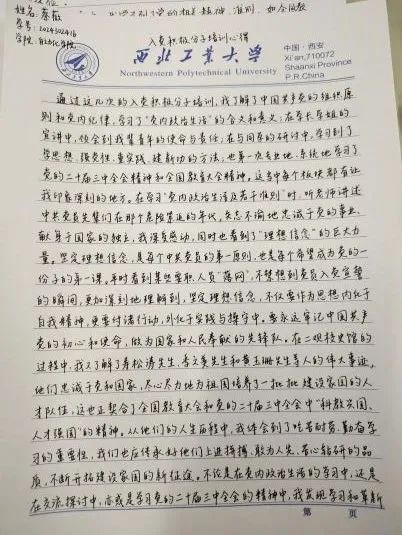 姓名:秦薇
学号:2024302416
学院:自动化学院
入党积极分子培训心得
西北工业大学
Northwestern Polytechnical University
中国·西安
Xi'an,710072
Shaanxi Province
P.R.China
通过这几次的入党积极分子培训,我了解了中国共产党的组织原
则和党内纪律,学习了“党内政治生活”的含义和意义;在李长春组的
宣讲中,领会到我辈青年的使命与责任;在与同志的研讨中,学习到了
学思想、强党性、重实践、建新功的方法;也第一次专业地、系统地学习了
党的二十届三中全会精神和全国教育大会精神。这当中每个板块都有让
我印象深刻的地方。在学习“党内政治生活及若干准则”时,听老师讲述
中共党员先辈们在那个危险紧迫的年代,矢志不渝地忠诚于党的事业,
献身于国家的独立,我深受感动,同时也看到了“理想信念”的巨大力
量。坚定理想信念,是每个中共党员的第一原则,也是每个希望成为党的一
份子的第一课。平时看到某些要职人员“落网”,不禁想到党员入党宣誓
的瞬间,更加深刻地理解到,坚定理想信念,不仅要作为思想内化于
自我精神,更要付诸行动,外化于实践与操守中。要永远牢记中国共产
党的初心和使命,做为国家和人民奉献的先锋队。在二观校史馆的
过程中,我又了解了寿松涛先生、季文美先生和黄玉珊先生等人的伟大事迹。
他们忠诚于党和国家,尽心尽力地为祖国培养了一批批建设家国的人
才队伍,这也正契合了全国教育大会和党的二十届三中全会中“科教兴国、
人才强国”的精神。从他们的人生历程中,我体会到了吃苦耐劳、勤奋学
习的重要性,我们也应传承好他们上进拼搏、敢为人先、苦心钻研的品
质,不断开拓建设家国的新征途。不论是在党内政治生活的学习中,还是
在交流探讨中,亦或是学习党的二十届三中全会的精神中,我发现学习和革新
第 页